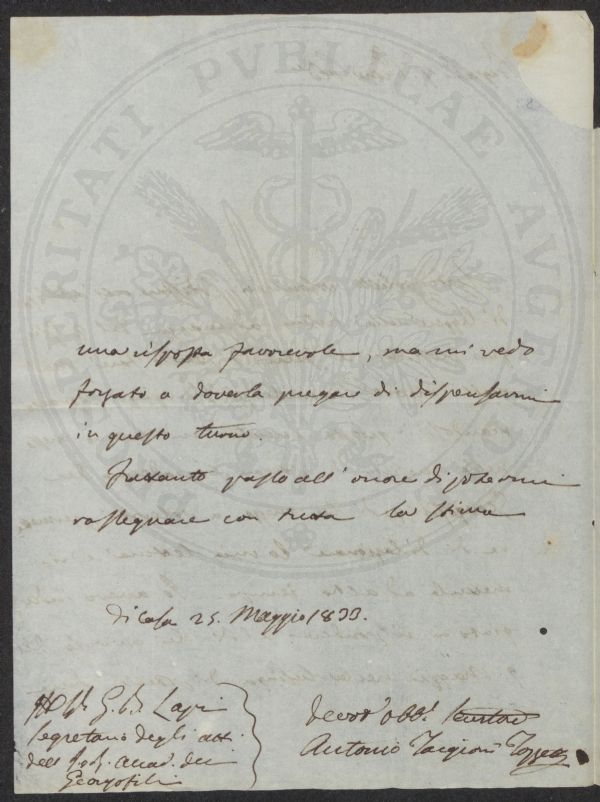 PERITATI PVBLICAE AVGENDAE
una risposta favorevole, ma mi vedo
forzato a doverla pregare di dispensarmi
in questo turno.
Frattanto passo all'onore di potermi
rassegnare con tutta la stima
di Casa 25. Maggio 1833.
G. B. Lapi
Segretario degli atti
dell' Accad. dei
Georgofili
devot.º obb.º servitore
Antonio Targioni Tozzetti